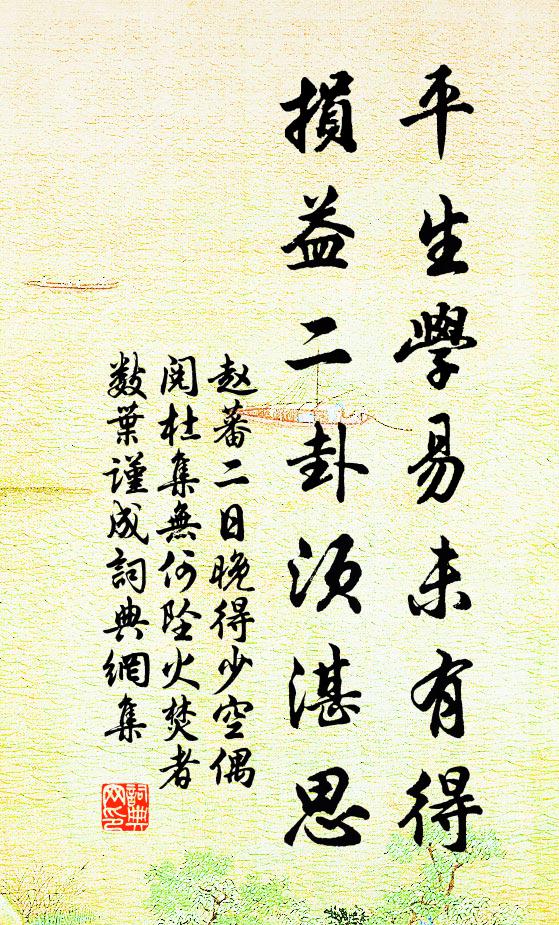 平生學易未有得
損益二卦須湛思
赵蕃二日晚得少空偶
閱杜集無何墜火焚者
數葉謹成詞典網集
詞典
网印